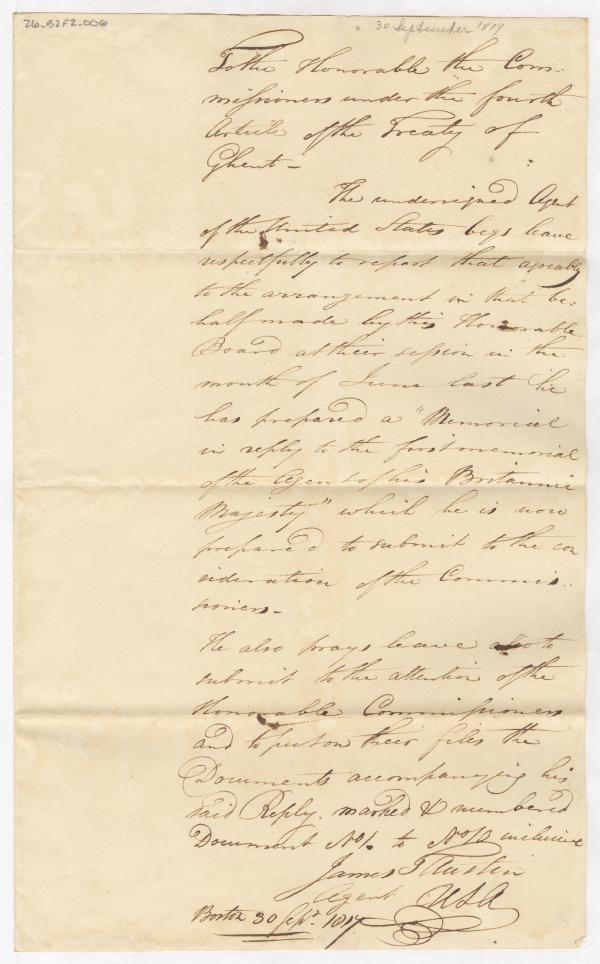 76-S2F2-006
30 September 1817
To the Honorable the Com-
missioners under the fourth
Article of the Treaty of
Ghent-
The undersigned Agent
of the United States begs leave
respectfully to report that agreably
to the arrangement in that be=
half made by this Honorable
Board at their session in the
month of June last he
has prepared a "Memorial
in reply to the first memorial
of the Agent of his Britannic
Majesty" which he is now
prepared to submit to the con
sideration of the Commis..
sioners-
He also prays leave also to
submit to the attention of the
Honorable Commissioners
and to put on their files the
Documents accompanying his
said Reply. marked & numbered
Document No 1. to No inclusive
James T Austin
Agent USA
Boston 30 Sept. 1817.